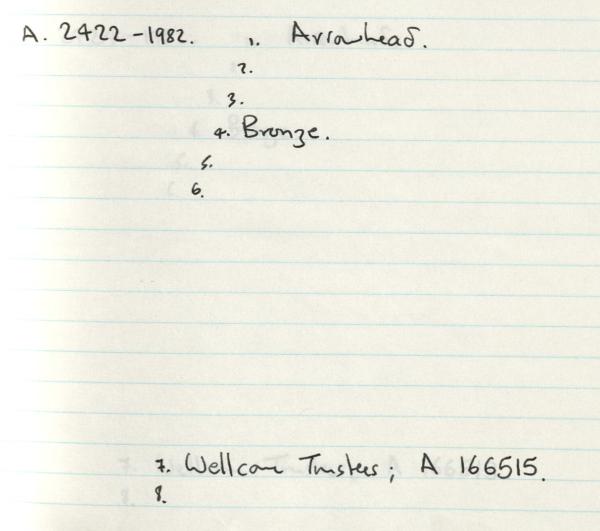 A. 2422-1982. 1. Arrowhead.
2.
3.
4. Bronze.
5.
6.
7. Wellcome Trustees; A 166515.
8.